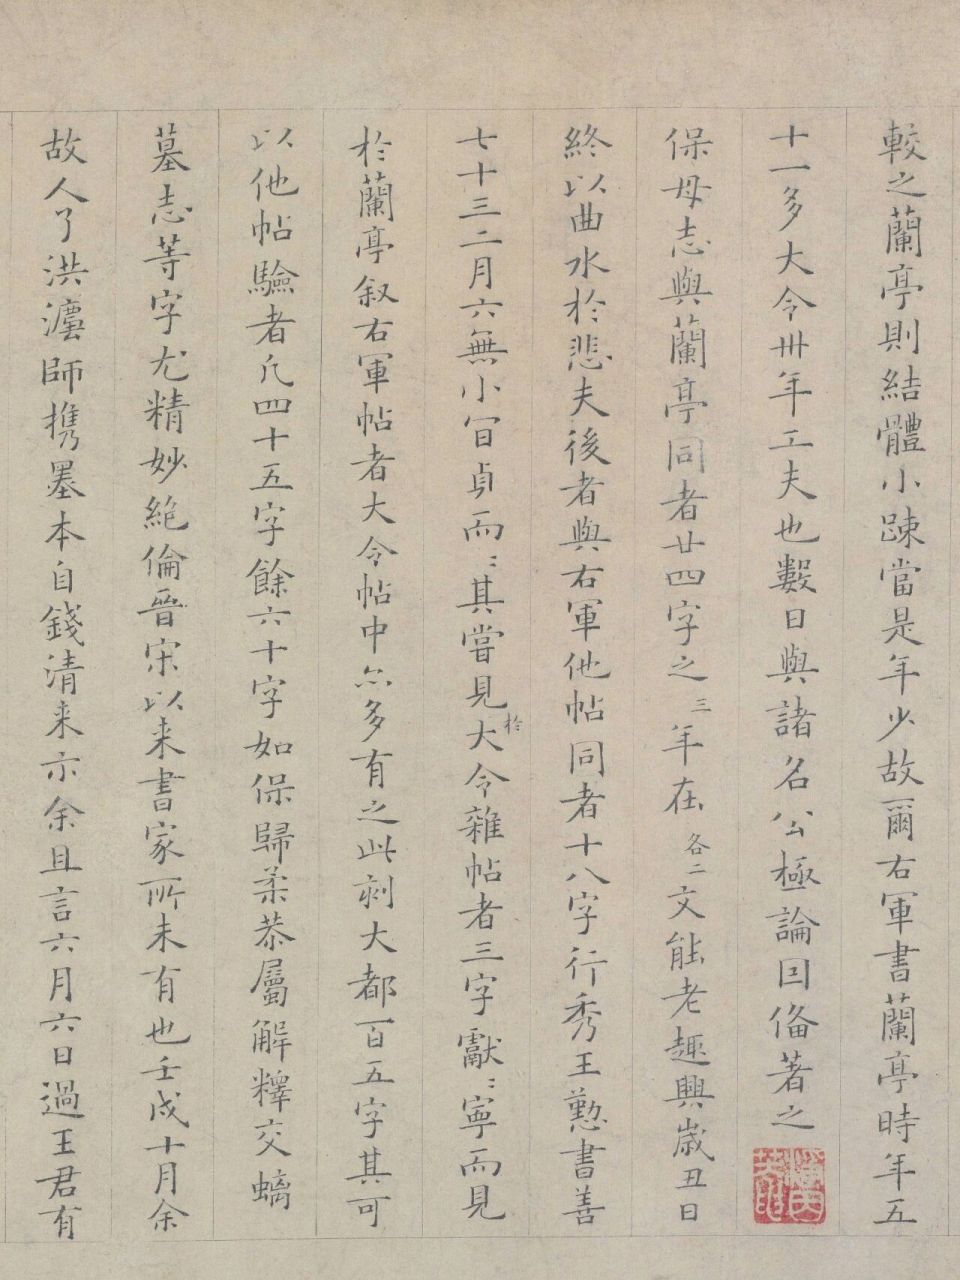 較之蘭亭則結體小踈當是年少故爾右軍書蘭亭時年五
十一多大令卅年工夫也數日與諸名公極論因俻著之
保母志與蘭亭同者廿四字之三年在各二文能老趣興歲丑日
終以曲水於悲夫後者與右軍他帖同者十八字行秀王懃書善
七十三二月六無小官貞而〻其嘗見於大令雜帖者三字獻〻寧而見
於蘭亭叙右軍帖者大令帖中亦多有之此刻大都百五字其可
以他帖驗者凡四十五字餘六十字如保歸柔恭屬解釋交螭
墓志等字尤精妙絕倫晉宋以来書家所未有也壬戌十月余
故人了洪瀍師攜墨本自錢清来示余且言六月六日過王君有